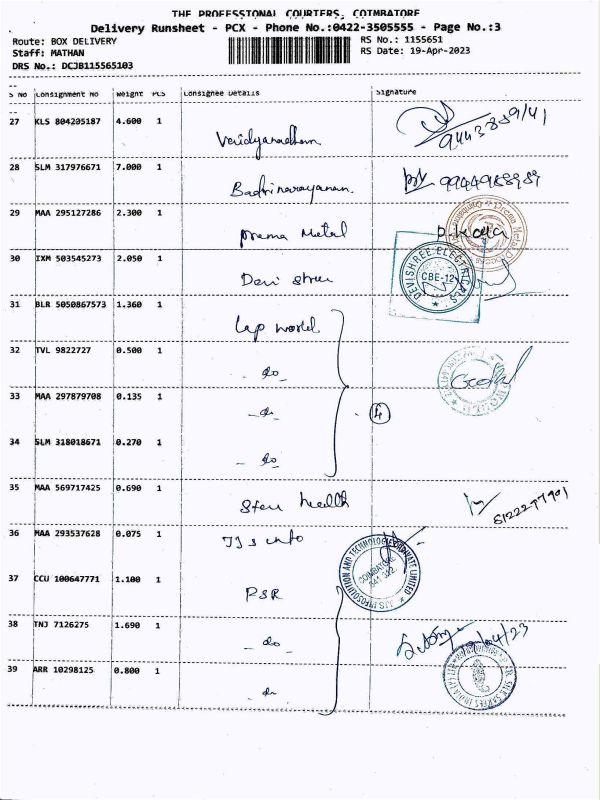 THE PROFESSIONAL COURIERS, COIMBATORE
Delivery Runsheet - PCX - Phone No.:0422-3505555 - Page No.:3
Route: BOX DELIVERY
Staff: MATHAN
DRS No.: DCJB115565103
RS No.: 1155651
RS Date: 19-Apr-2023
S No Consignment No Weight PCS Consignee Details Signature
27 KLS 804205187 4.600 1
28 SLM 317976671 7.000 1 Badrinarayanan
29 MAA 295127286 2.300 1 Prema Metal
30 IXM 503545273 2.050 1 Devi shree
DEVISHREE ELECTRICALS
CBE-12
31 BLR 5050867573 1.360 1 Lap world
32 TVL 9822727 0.500 1 - do -
Gopal
33 MAA 297879708 0.135 1 - do -
4
34 SLM 318018671 0.270 1 - do -
35 MAA 569717425 0.690 1 health
36 MAA 293537628 0.075 1 JJs info
37 CCU 100647771 1.100 1 PSR
COIMBATORE
38 TNJ 7126275 1.690 1 - do -
39 ARR 10298125 0.800 1 - do -